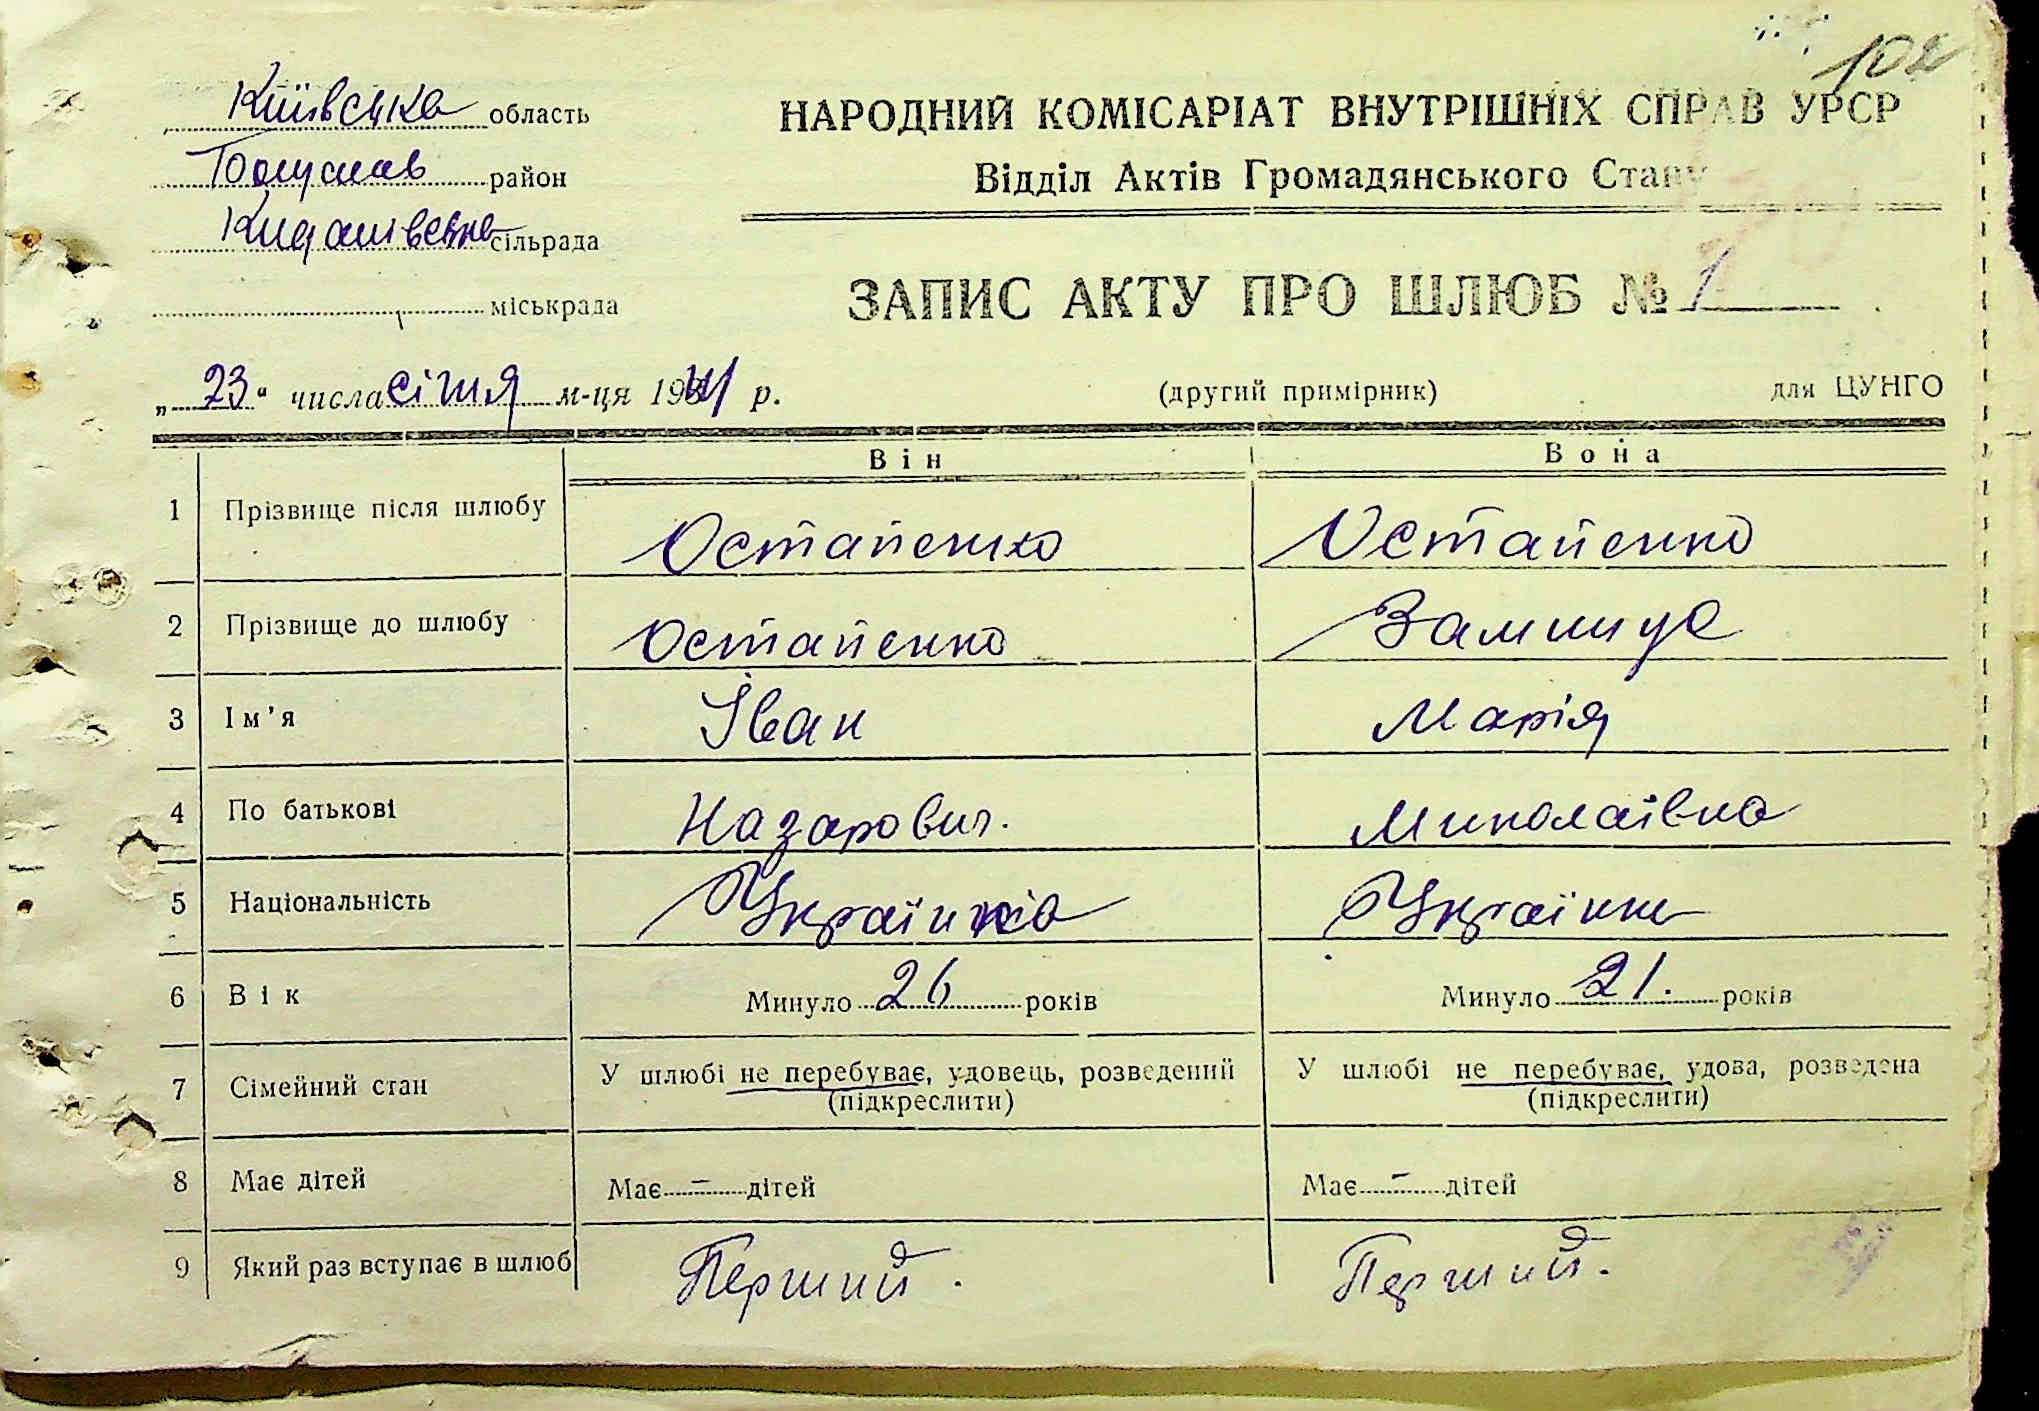 102
Київська область
Богуслав район
Кидановська сільрада
міськрада
НАРОДНИЙ КОМІСАРІАТ ВНУТРІШНІХ СПРАВ УРСР
Відділ Актів Громадянського Стану
ЗАПИС АКТУ ПРО ШЛЮБ № 1
„23“ числа січня м-ця 1941 р.
(другий примірник)
для ЦУНГО
Він Вона
1 Прізвище після шлюбу Остапенко Остапенко
2 Прізвище до шлюбу Остапенко
3 Ім’я Іван Марія
4 По батькові Назарович. Миколаївна
5 Національність Українка
6 Вік Минуло 26 років Минуло 21. років
7 Сімейний стан У шлюбі не перебуває, удовець, розведений У шлюбі не перебуває, удова, розведена
(підкреслити) (підкреслити)
8 Має дітей Має – дітей Має – дітей
9 Який раз вступає в шлюб Перший. Перший.